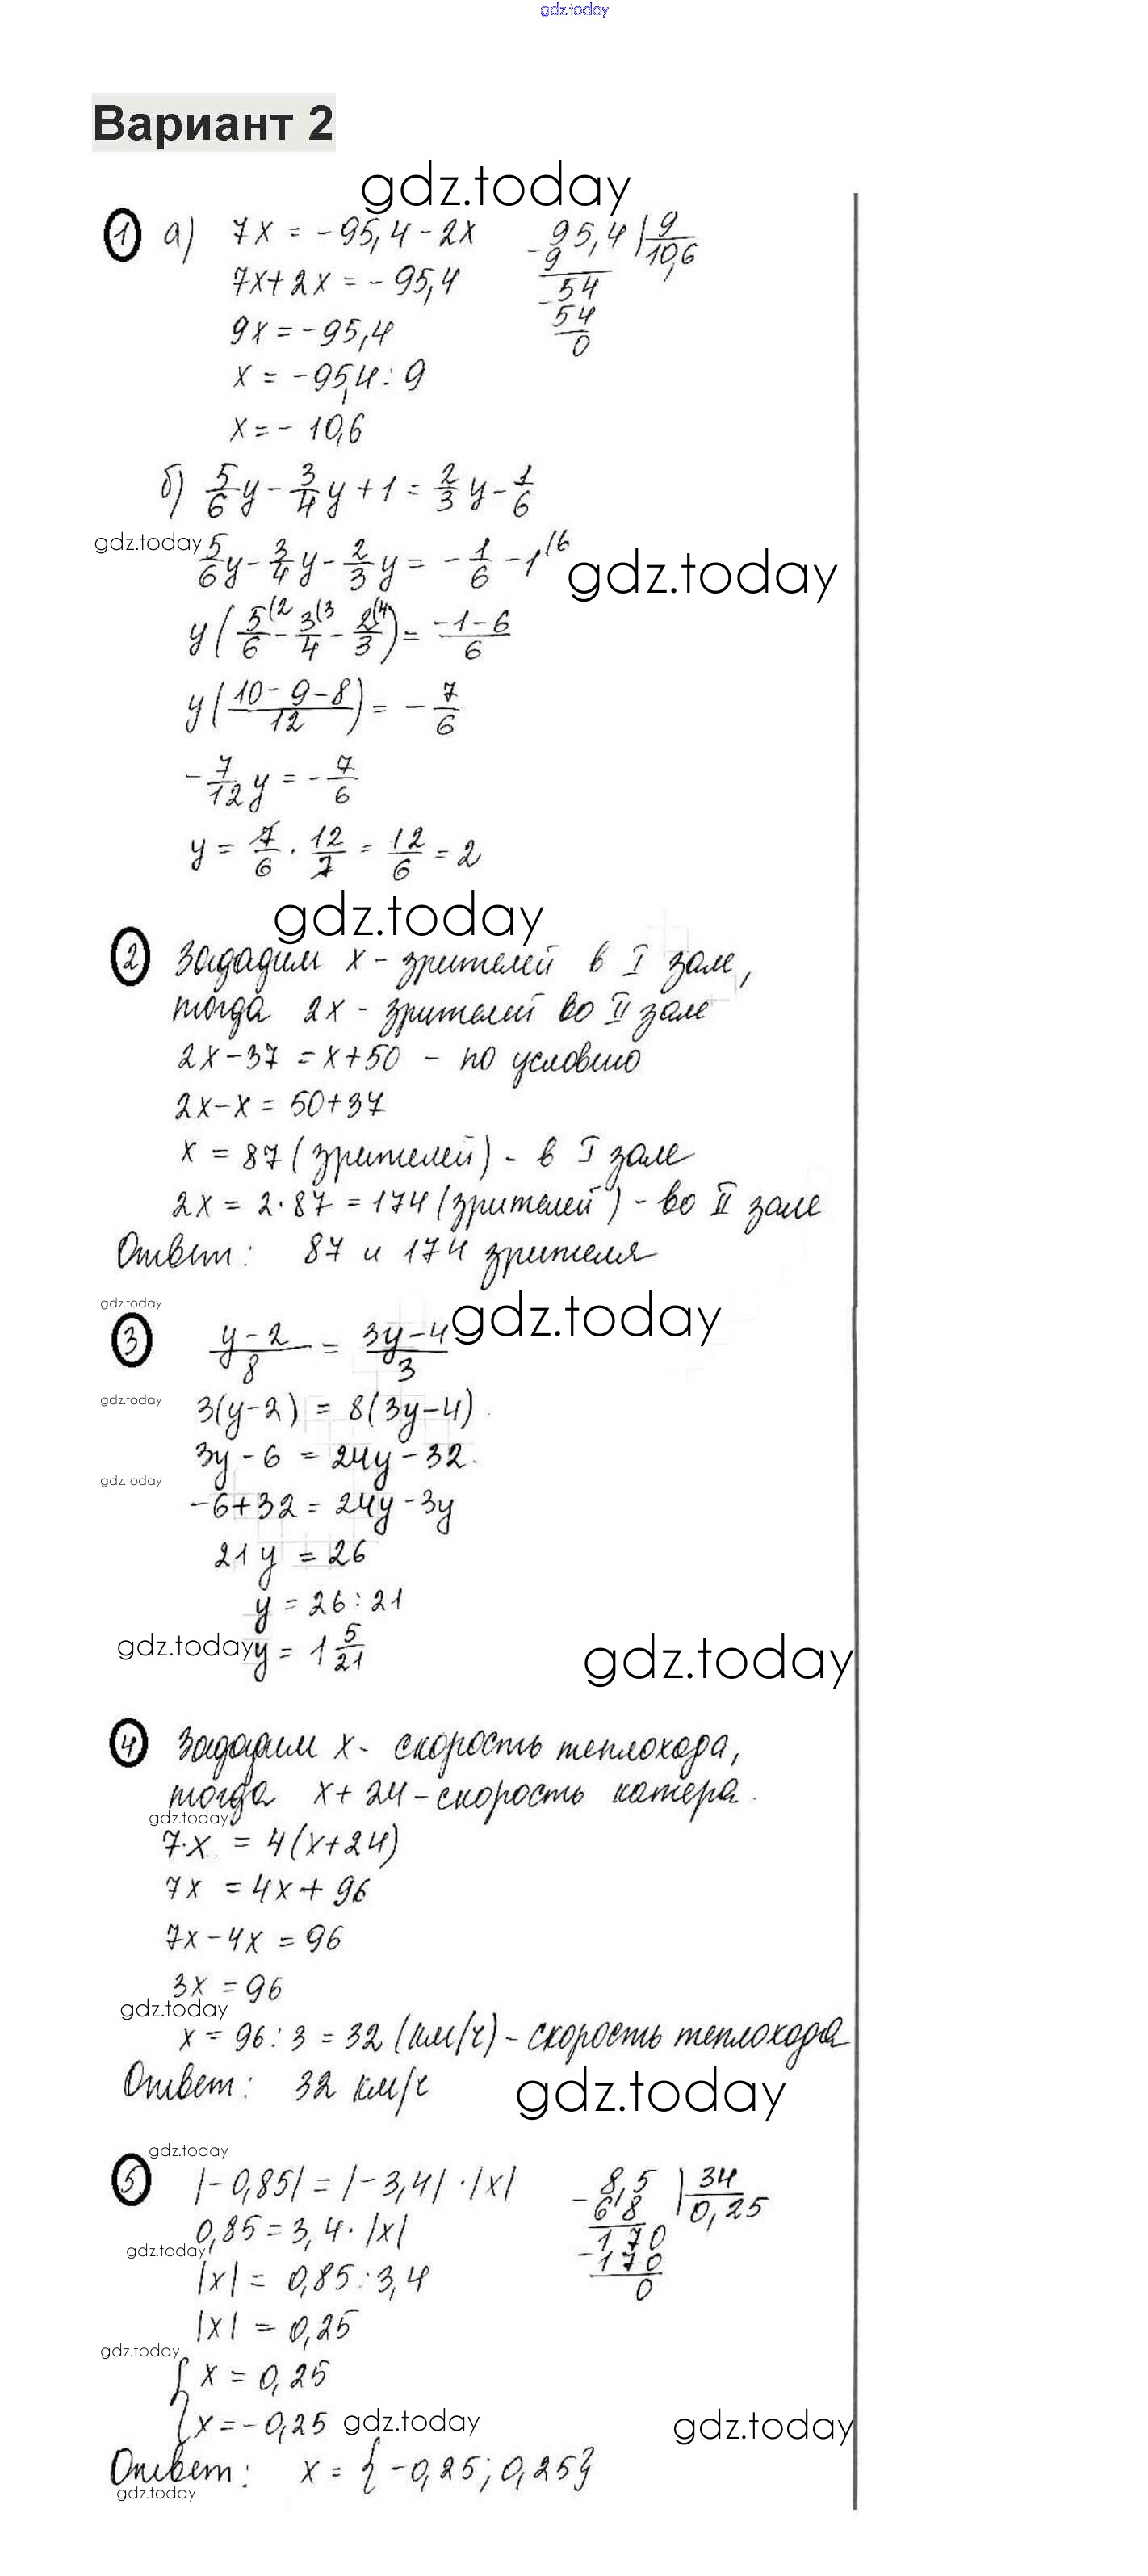 gdz.today
Вариант 2
gdz.today
1 а) 7x = -95,4-2x
95,4 | 9
- 9 10,6
7x+2x = -95,4
- 54
54
0
9x = -95,4
x = -95,4 : 9
x = - 10,6
б) 5/6 y - 3/4 y + 1 = 2/3 y - 1/6
gdz.today
5/6 y - 3/4 y - 2/3 y = - 1/6 - 1 (6
gdz.today
y ( 5/6 (2 - 3/4 (3 - 2/3 (4 ) = -1-6/6
y ( 10-9-8/12 ) = - 7/6
- 7/12 y = - 7/6
y = 7/6 · 12/7 = 12/6 = 2
gdz.today
2 Зададим x - зрителей в I зале,
тогда 2x - зрителей во II зале
2x-37 = x+50 - по условию
2x-x = 50+37
x = 87 (зрителей) - в I зале
2x = 2·87 = 174 (зрителей) - во II зале
Ответ: 87 и 174 зрителя
gdz.today
gdz.today
3 y-2/8 = 3y-4/3
gdz.today
3(y-2) = 8(3y-4)
3y-6 = 24y-32
gdz.today
-6+32 = 24y-3y
21y = 26
y = 26:21
gdz.today
y = 1 5/21
gdz.today
4 Зададим x - скорость теплохода,
тогда x+24 - скорость катера.
gdz.today
7·x = 4(x+24)
7x = 4x+96
7x-4x = 96
3x = 96
gdz.today
x = 96:3 = 32 (км/ч) - скорость теплохода
Ответ: 32 км/ч
gdz.today
gdz.today
5 |-0,85| = |-3,4| · |x|
8,5 | 34
- 6 8 0,25
170
- 170
0
0,85 = 3,4 · |x|
gdz.today
|x| = 0,85 : 3,4
|x| = 0,25
gdz.today
{ x = 0,25
x = -0,25
gdz.today
gdz.today
Ответ: x = {-0,25; 0,25}
gdz.today